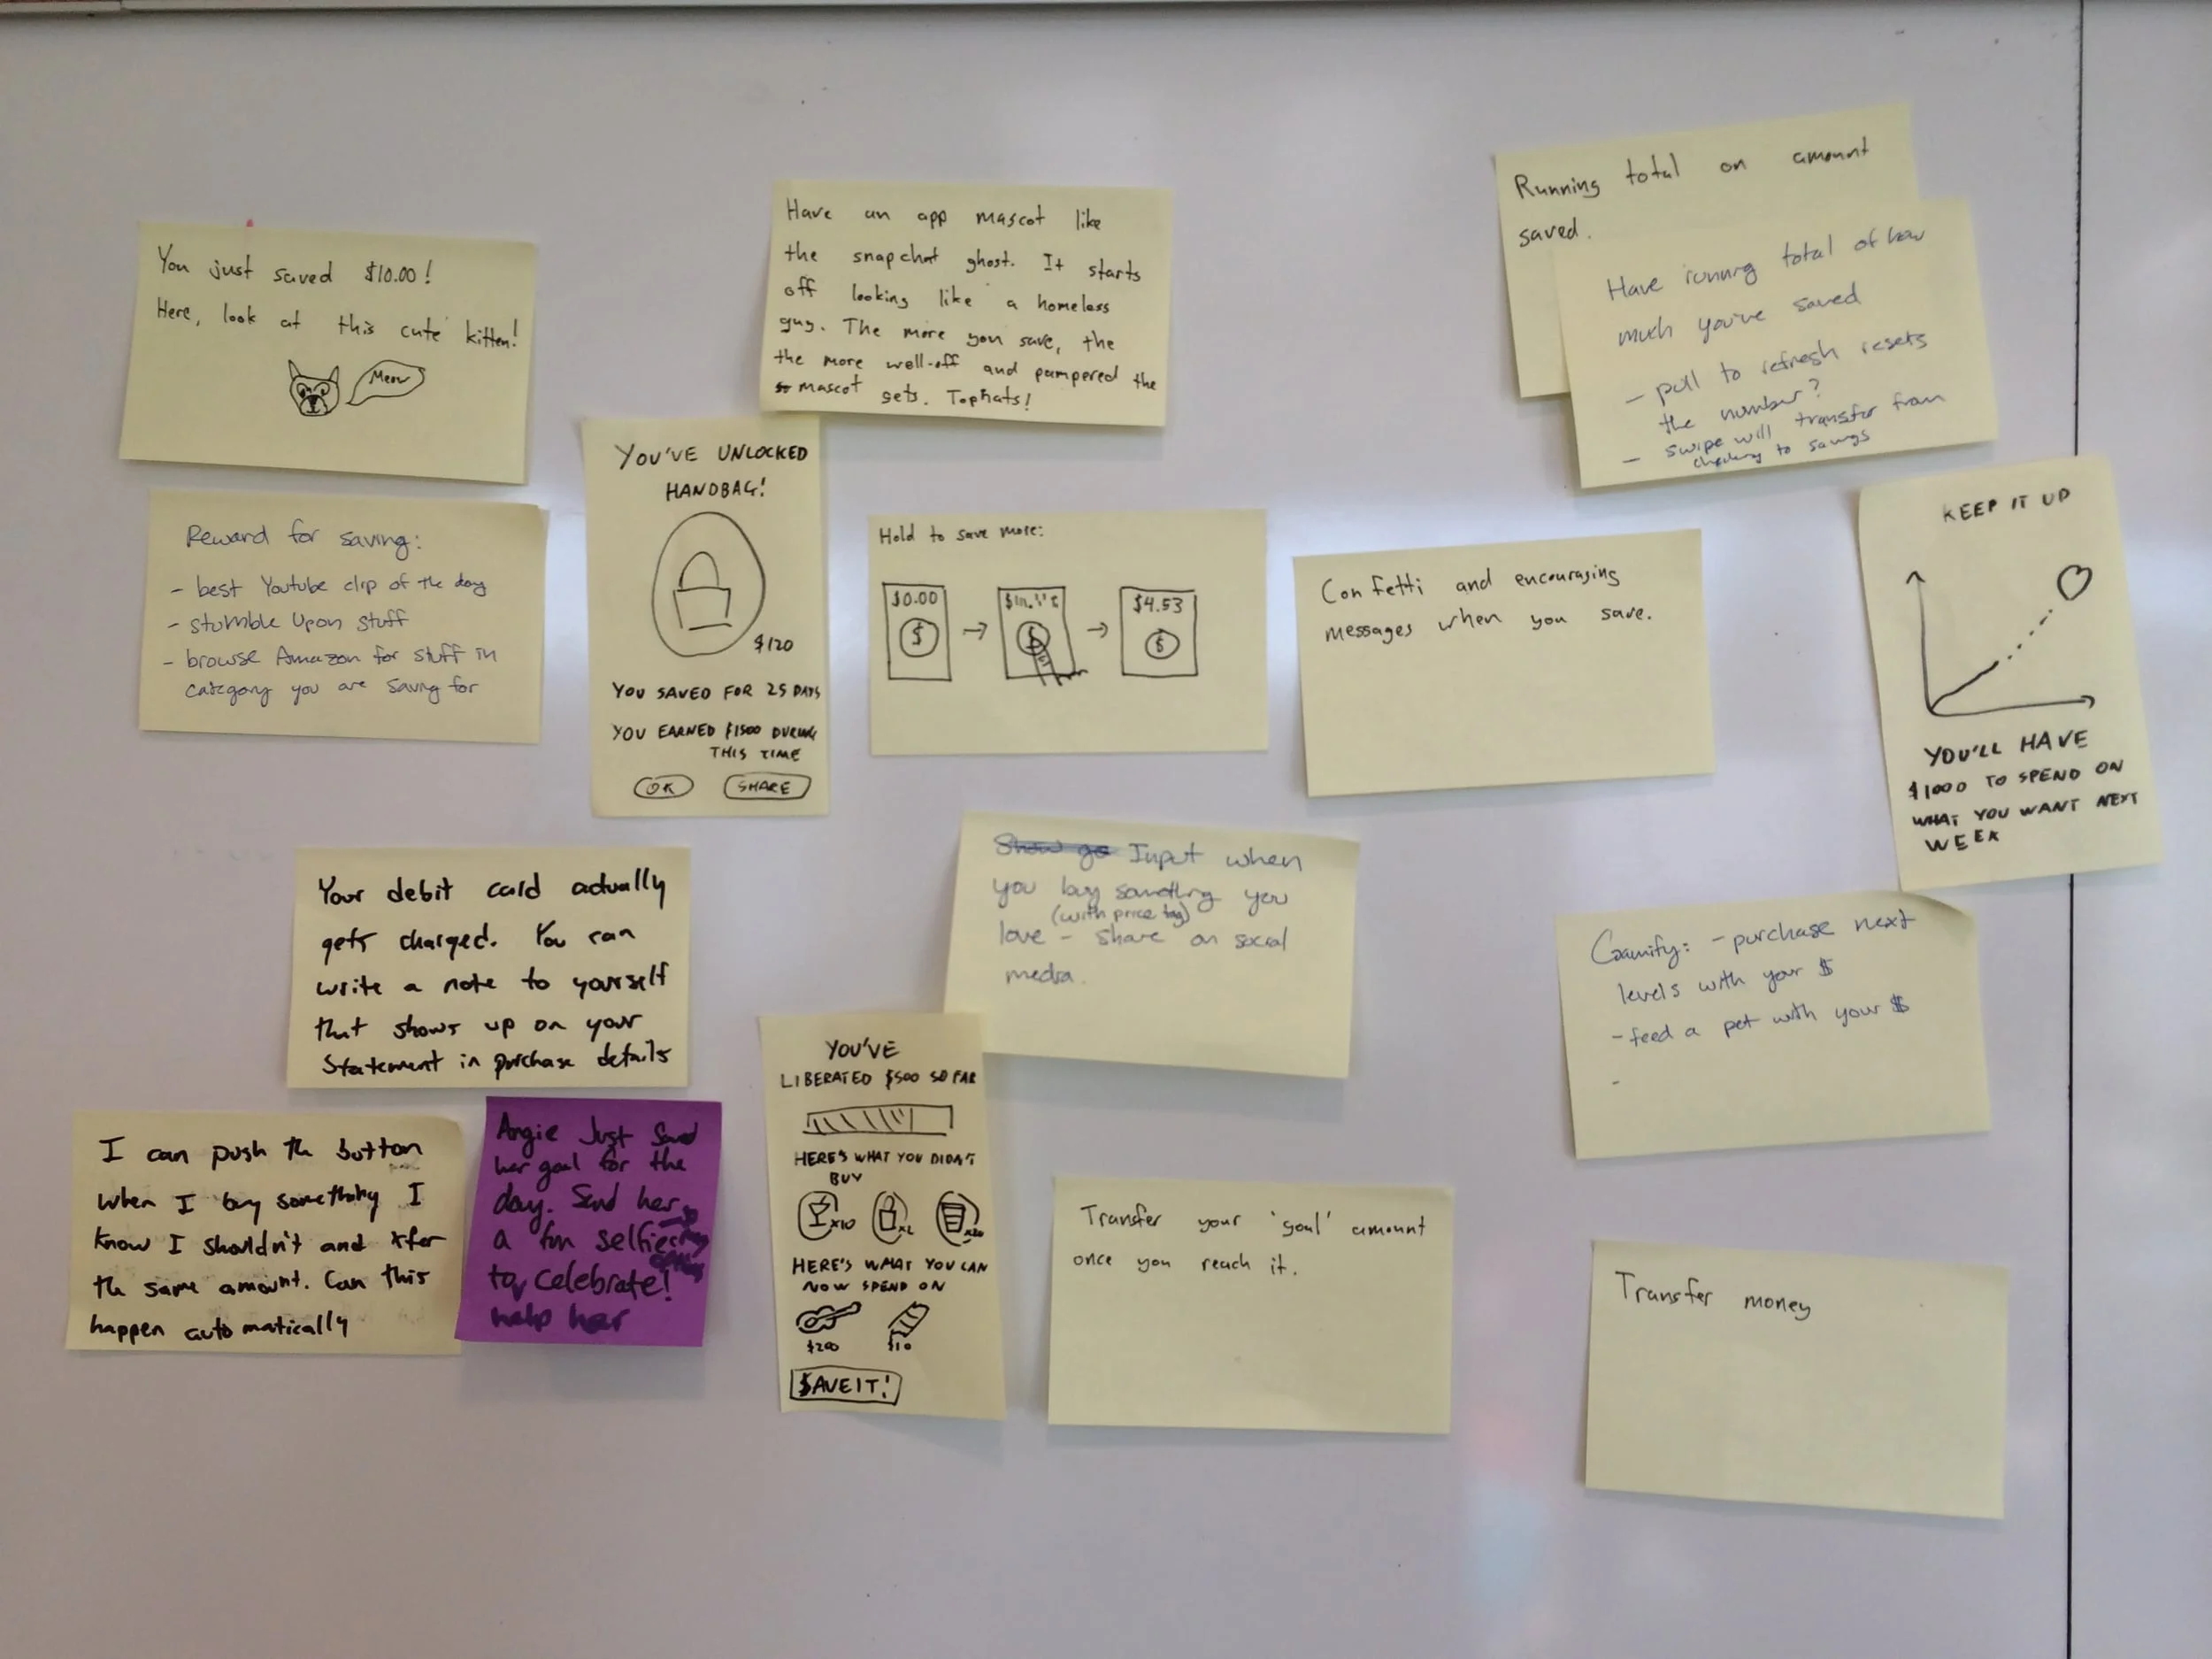 You just saved $10.00!
Here, look at this cute kitten!
Meow
Have an app mascot like
the snapchat ghost. It starts
off looking like a homeless
guy. The more you save, the
the more well-off and pampered the
mascot gets. Tophats!
Running total on amount
saved.
Have running total of how
much you've saved
- pull to refresh resets
the number?
- swipe will transfer from
checking to savings
Reward for saving:
- best Youtube clip of the day
- stumble Upon stuff
- browse Amazon for stuff in
category you are saving for
YOU'VE UNLOCKED
HANDBAG!
$120
YOU SAVED FOR 25 DAYS
YOU EARNED $1500 DURING
THIS TIME
OK SHARE
Hold to save more:
$0.00
$
$
$4.53
$
Confetti and encouraging
messages when you save.
KEEP IT UP
YOU'LL HAVE
$1000 TO SPEND ON
WHAT YOU WANT NEXT
WEEK
Your debit card actually
gets charged. You can
write a note to yourself
that shows up on your
statement in purchase details
Show go Input when
you buy something you
(with price tag)
love - share on social
media.
Gamify: - purchase next
levels with your $
- feed a pet with your $
-
I can push the button
when I buy something I
know I shouldn't and xfer
the same amount. Can this
happen automatically
Angie Just Saved
her goal for the
day. Send her
a fun selfie
to celebrate!
help her
YOU'VE
LIBERATED $500 SO FAR
HERE'S WHAT YOU DIDN'T
BUY
x10 x2 x20
HERE'S WHAT YOU CAN
NOW SPEND ON
$200 $10
$AVE IT!
Transfer your 'goal' amount
once you reach it.
Transfer money